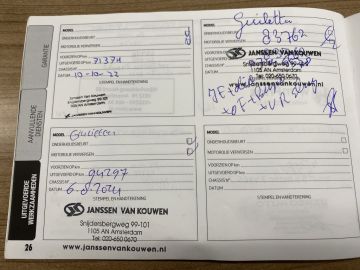 GARANTIE
AANVULLENDE DIENSTEN
UITGEVOERDE WERKZAAMHEDEN
MODEL
ONDERHOUDSBEURT
MOTOROLIE VERVERSEN
VOORZIEN OP km
UITGEVOERD OP km 71371
CHASSIS Nº
DATUM 10-10-22
STEMPEL EN HANDTEKENING
JANSSEN VAN KOUWEN
Snijdersbergweg 99-101
1105 AN Amsterdam
MODEL Giulietta
ONDERHOUDSBEURT
83762
JANSSEN VAN KOUWEN
Snijdersbergweg 99-101
1105 AN Amsterdam
Tel.: 020-650 0670
www.janssenvankouwen.nl
MODEL Giulietta
ONDERHOUDSBEURT
MOTOROLIE VERVERSEN
VOORZIEN OP km
UITGEVOERD OP km 94297
CHASSIS Nº
DATUM 6-8-2024
STEMPEL EN HANDTEKENING
JANSSEN VAN KOUWEN
Snijdersbergweg 99-101
1105 AN Amsterdam
Tel.: 020-650 0670
www.janssenvankouwen.nl
MODEL
ONDERHOUDSBEURT
MOTOROLIE VERVERSEN
VOORZIEN OP km
UITGEVOERD OP km
CHASSIS Nº
DATUM
STEMPEL EN HANDTEKENING
26